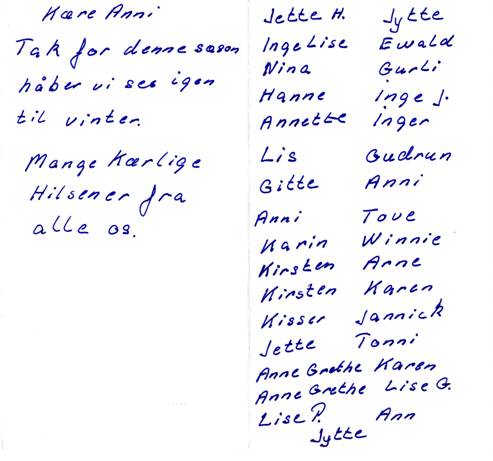 Kære Anni
Tak for denne sæson
håber vi ses igen
til vinter.
Mange Kærlige
Hilsener fra
alle os.
Jette H. Jytte
Inge Lise Ewald
Nina Gurli
Hanne Inge J.
Annette Inger
Lis Gudrun
Gitte Anni
Anni Tove
Karin Winnie
Kirsten Arne
Kirsten Karen
Kisser Jannick
Jette Tonni
Anne Grethe Karen
Anne Grethe Lise G.
Lise P. Ann
Jytte